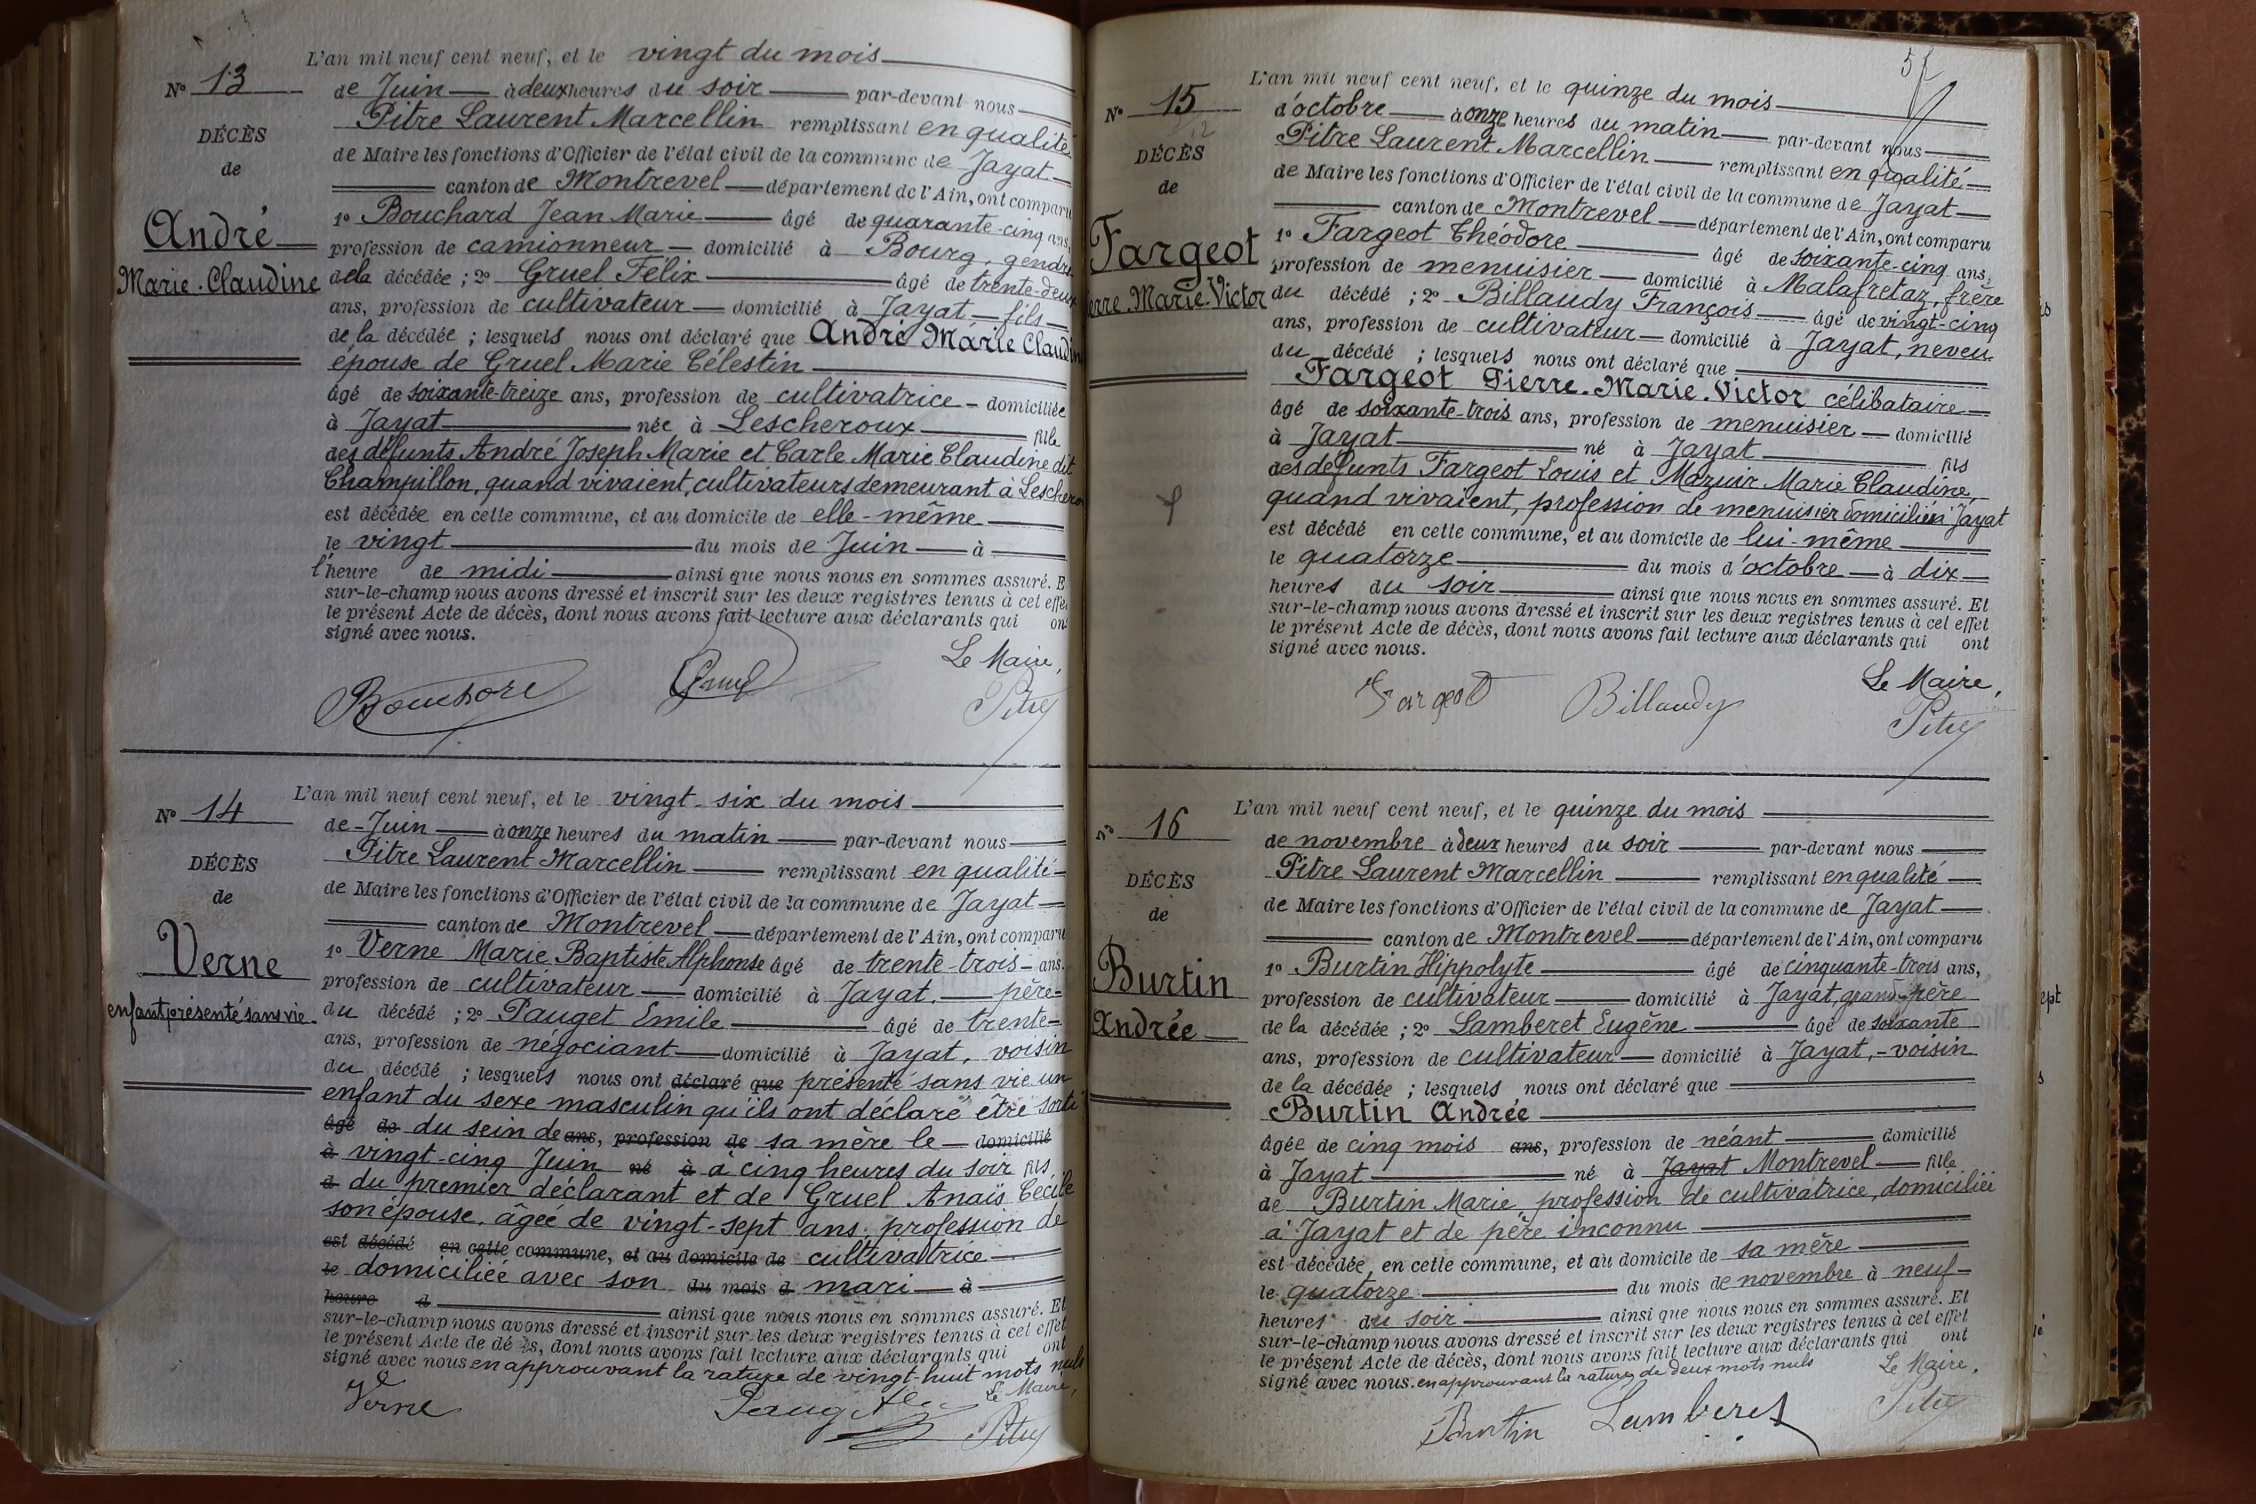 L'an mil neuf cent neuf, et le vingt du mois
N° 13
de Juin à deux heures du soir par-devant nous
Pitre Laurent Marcellin remplissant en qualité
DÉCÈS
de Maire les fonctions d'Officier de l'état civil de la commune de Jayat
de
canton de Montrevel département de l'Ain, ont comparu
1° Bouchard Jean Marie âgé de quarante-cinq ans,
André
profession de camionneur domicilié à Bourg, gendre
Marie-Claudine
de la décédée ; 2° Gruel Félix âgé de trente-deux
ans, profession de cultivateur domicilié à Jayat fils
de la décédée ; lesquels nous ont déclaré que André Marie Claudine
épouse de Gruel Marie Célestin
âgé de soixante-treize ans, profession de cultivatrice domiciliée
à Jayat née à Lescheroux fille
des défunts André Joseph Marie et Carle Marie Claudine dit
Champillon, quand vivaient, cultivateurs demeurant à Leschero
est décédée en cette commune, et au domicile de elle-même
le vingt du mois de Juin à
l'heure de midi ainsi que nous nous en sommes assuré. E
sur-le-champ nous avons dressé et inscrit sur les deux registres tenus à cet effet
le présent Acte de décès, dont nous avons fait lecture aux déclarants qui ont
signé avec nous.
Le Maire,
Bouchard Gruel Pitre
L'an mil neuf cent neuf, et le vingt-six du mois
N° 14
de Juin à onze heures du matin par-devant nous
Pitre Laurent Marcellin remplissant en qualité
DÉCÈS
de Maire les fonctions d'Officier de l'état civil de la commune de Jayat
de
canton de Montrevel département de l'Ain, ont comparu
1° Verne Marie Baptiste Alphonse âgé de trente-trois ans.
Verne
profession de cultivateur domicilié à Jayat, père
enfant présenté sans vie
du décédé ; 2° Pauget Emile âgé de trente
ans, profession de négociant domicilié à Jayat, voisin
du décédé ; lesquels nous ont déclaré que présenté sans vie un
enfant du sexe masculin qu'ils ont déclaré être sorti
âgé de du sein de ans, profession de sa mère le domicilié
à vingt-cinq Juin né à à cinq heures du soir fils
d du premier déclarant et de Gruel Anaïs Cécile
son épouse, âgée de vingt-sept ans, profession de
est décédé en cette commune, et au domicile de cultivatrice
le domiciliée avec son du mois d mari à
heure d ainsi que nous nous en sommes assuré. Et
sur-le-champ nous avons dressé et inscrit sur les deux registres tenus à cet effet
le présent Acte de décès, dont nous avons fait lecture aux déclarants qui ont
signé avec nous en approuvant la rature de vingt-huit mots nuls
Le Maire,
Verne Pauget Pitre
57
L'an mil neuf cent neuf, et le quinze du mois
N° 15
d'octobre à onze heures du matin par-devant nous
12
Pitre Laurent Marcellin remplissant en qualité
DÉCÈS
de Maire les fonctions d'Officier de l'état civil de la commune de Jayat
de
canton de Montrevel département de l'Ain, ont comparu
Fargeot
1° Fargeot Théodore âgé de soixante-cinq ans,
profession de menuisier domicilié à Malafretaz, frère
erre-Marie-Victor
du décédé ; 2° Billaudy François âgé de vingt-cinq
ans, profession de cultivateur domicilié à Jayat, neveu
du décédé ; lesquels nous ont déclaré que
Fargeot Pierre-Marie-Victor célibataire
âgé de soixante-trois ans, profession de menuisier domicilié
à Jayat né à Jayat fils
des défunts Fargeot Louis et Mazuir Marie Claudine,
quand vivaient, profession de menuisier domiciliés Jayat
est décédé en cette commune, et au domicile de lui-même
le quatorze du mois d'octobre à dix
heures du soir ainsi que nous nous en sommes assuré. Et
sur-le-champ nous avons dressé et inscrit sur les deux registres tenus à cet effet
le présent Acte de décès, dont nous avons fait lecture aux déclarants qui ont
signé avec nous.
Le Maire,
Fargeot Billaudy Pitre
L'an mil neuf cent neuf, et le quinze du mois
N° 16
de novembre à deux heures du soir par-devant nous
Pitre Laurent Marcellin remplissant en qualité
DÉCÈS
de Maire les fonctions d'Officier de l'état civil de la commune de Jayat
de
canton de Montrevel département de l'Ain, ont comparu
1° Burtin Hippolyte âgé de cinquante-trois ans,
Burtin
profession de cultivateur domicilié à Jayat, grand-père
Andrée
de la décédée ; 2° Lamberet Eugène âgé de soixante
ans, profession de cultivateur domicilié à Jayat, voisin
de la décédée ; lesquels nous ont déclaré que
Burtin Andrée
âgée de cinq mois ans, profession de néant domicilié
à Jayat né à Jayat Montrevel fille
de Burtin Marie, profession de cultivatrice, domiciliée
à Jayat et de père inconnu
est décédée en cette commune, et au domicile de sa mère
le quatorze du mois de novembre à neuf
heures du soir ainsi que nous nous en sommes assuré. Et
sur-le-champ nous avons dressé et inscrit sur les deux registres tenus à cet effet
le présent Acte de décès, dont nous avons fait lecture aux déclarants qui ont
signé avec nous. en approuvant la rature de deux mots nuls
Le Maire,
Burtin Lamberet Pitre